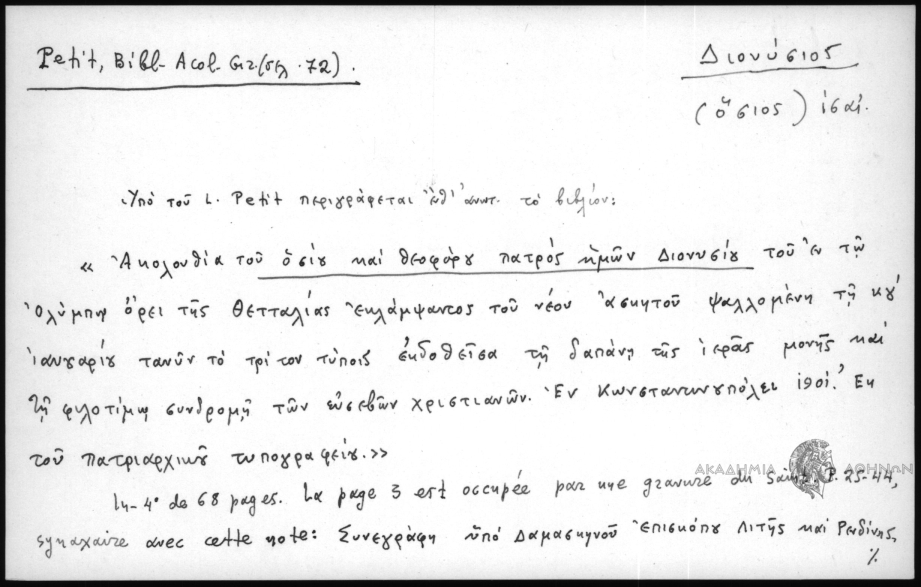 Petit, Bibl. Acol. Gr. (σελ. 72).
Διονύσιος
(ὅσιος)
Ὑπό τοῦ L. Petit περιγράφεται τό βιβλίον:
« Ἀκολουθία τοῦ ὁσίου καί θεοφόρου πατρός ἡμῶν Διονυσίου τοῦ ἐν τῷ
Ὀλύμπῳ ὄρει τῆς Θετταλίας ἐκλάμψαντος τοῦ νέου ἀσκητοῦ ψαλλομένη τῇ κγ'
ἰανουαρίου τανῦν τό τρίτον τύποις ἐκδοθεῖσα τῇ δαπάνῃ τῆς ἱερᾶς μονῆς καί
τῇ φιλοτίμῳ συνδρομῇ τῶν εὐσεβῶν χριστιανῶν. Ἐν Κωνσταντινουπόλει Ἐκ
τοῦ πατριαρχικοῦ τυπογραφείου.»
ΑΚΑΔΗΜΙΑ ΑΘΗΝΩΝ
In-4° de 68 pages. La page 3 est occupée par une gravure du Saint. P. 25-44,
synaxaire avec cette note: Συνεγράφη ὑπό Δαμασκηνοῦ Ἐπισκόπου Λιτῆς καί Ρενδίνης
%